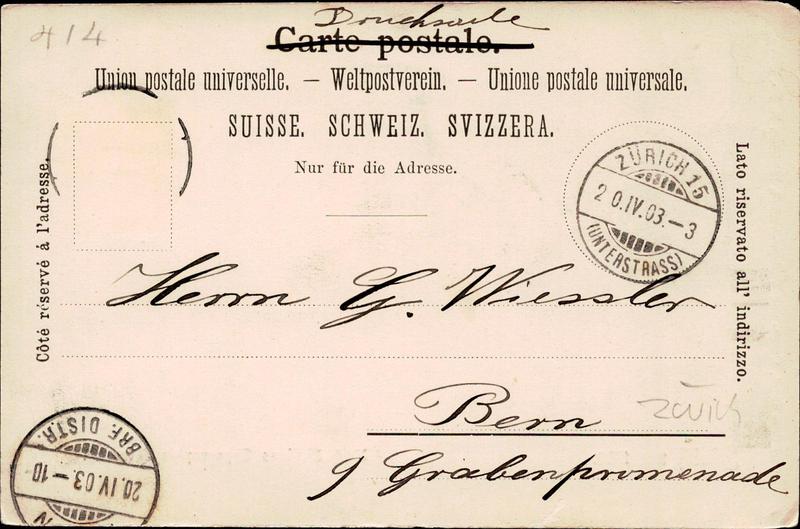 414
Drucksache
Carte postale.
Union postale universelle. — Weltpostverein. — Unione postale universale.
SUISSE. SCHWEIZ. SVIZZERA.
Nur für die Adresse.
Côté réservé à l'adresse.
Lato riservato all' indirizzo.
ZÜRICH 15
20.IV.03.-3
(UNTERSTRASS)
Herrn G. Wiessler
Bern
Zürich
9 Grabenpromenade
BRF. DISTR.
20.IV.03-10